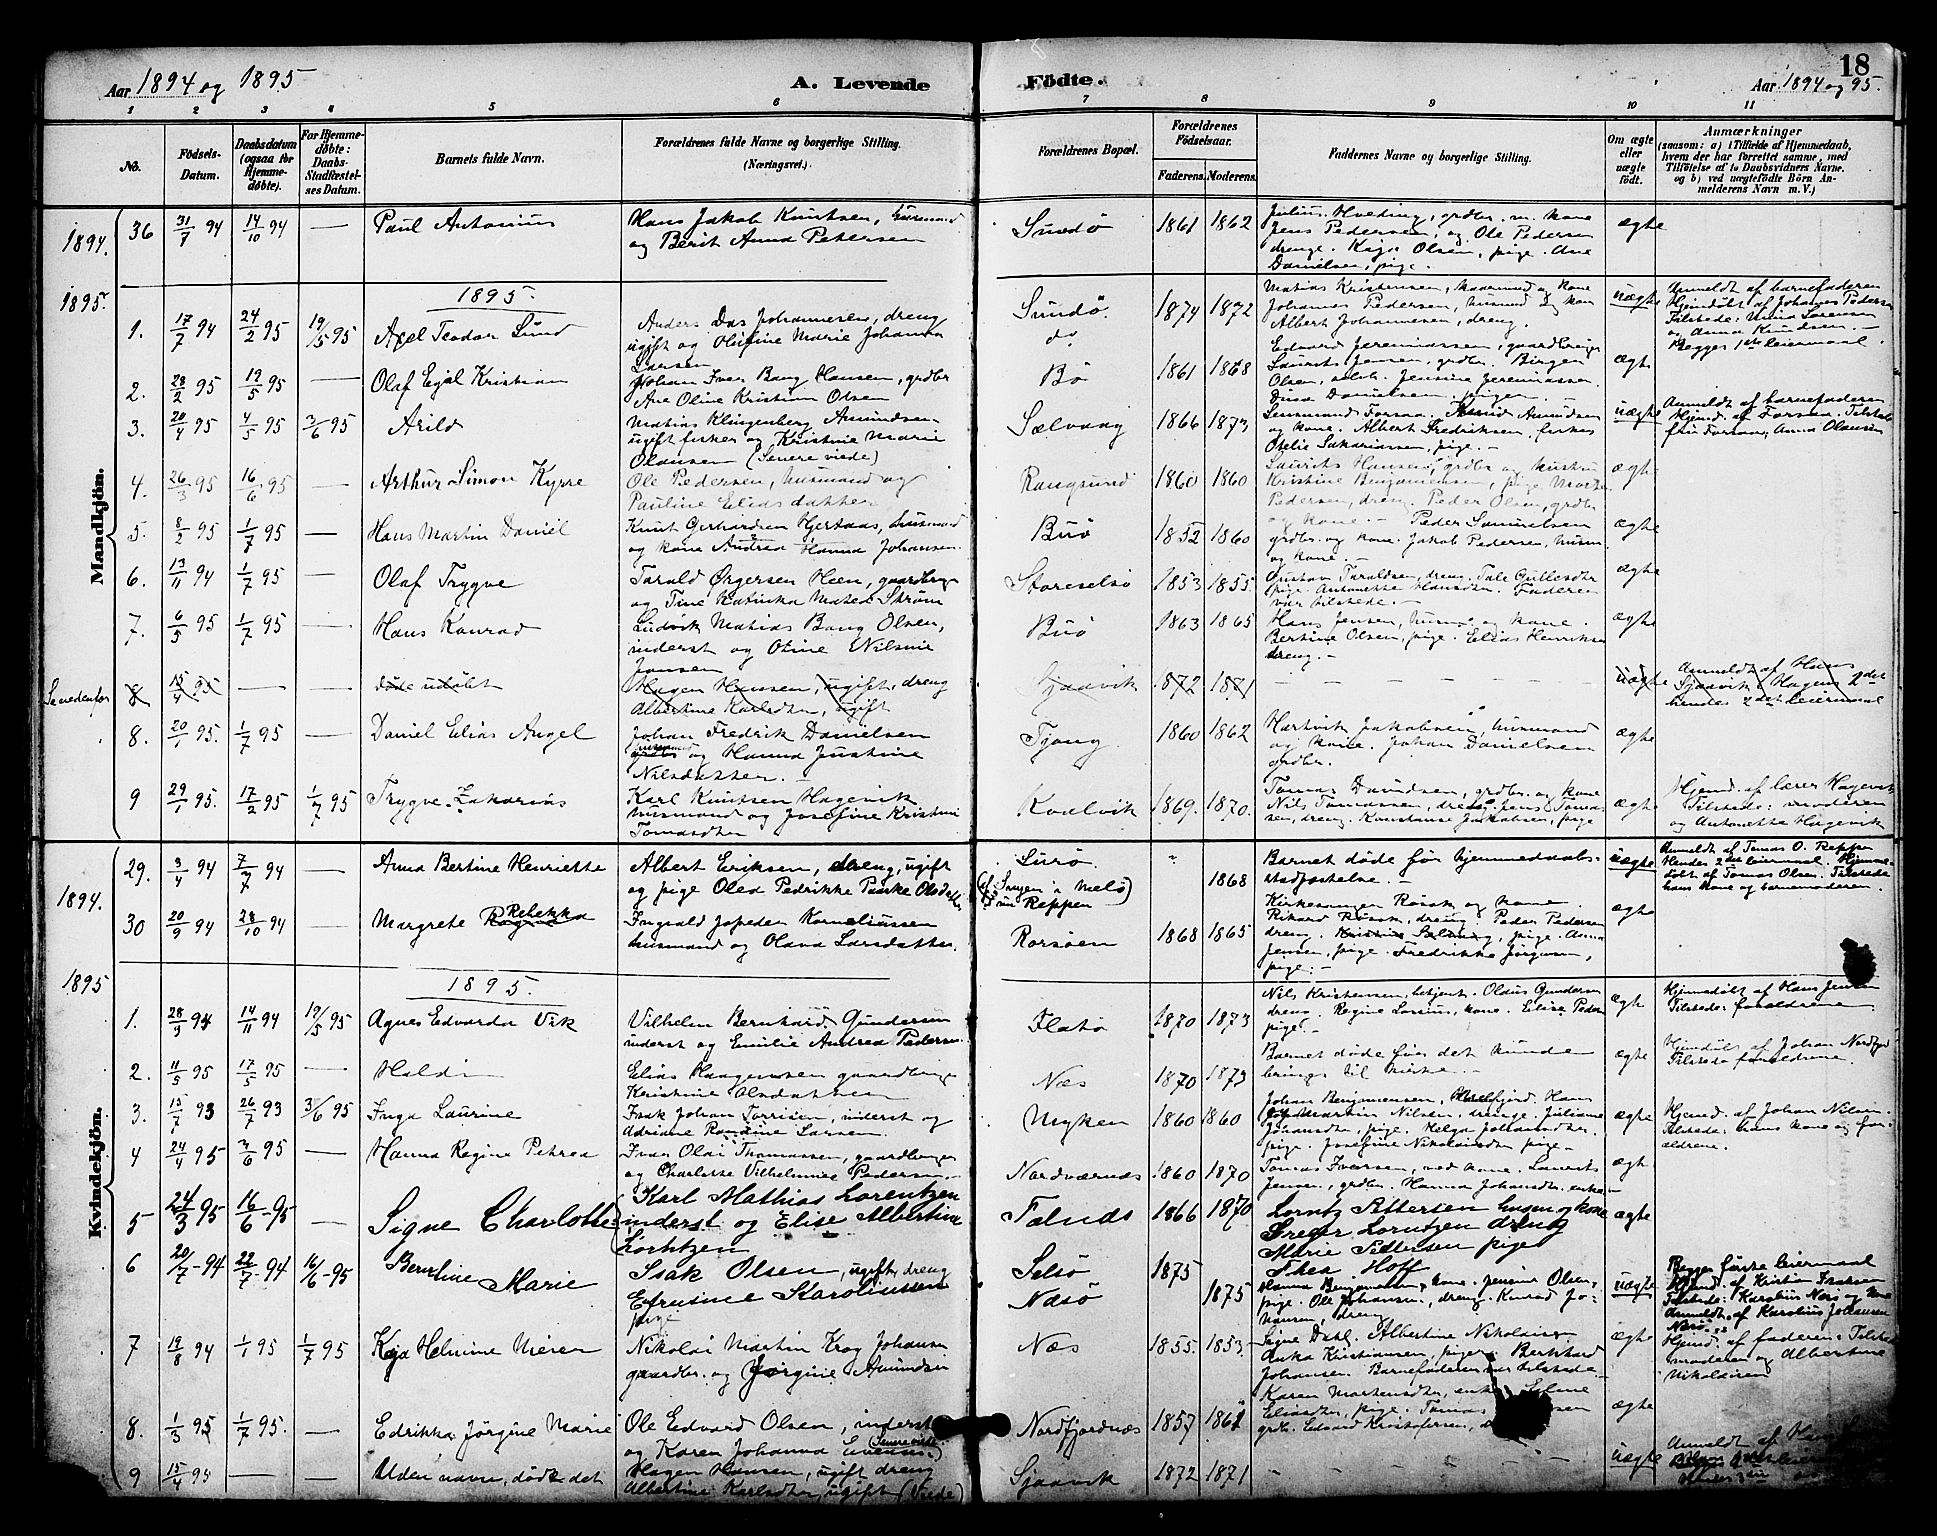 Aar 1894 og 1895
A. Levende Fødte.
18
Aar 1894 og 95.
1 2 3 4 5 6 7 8 9 10 11
No.
Fødsels-Datum.
Daabsdatum (ogsaa for Hjemmedøbte).
For Hjemmedøbte: Daabs-Stadfæstelses Datum.
Barnets fulde Navn.
Forældrenes fulde Navne og borgerlige Stilling. (Næringsvei.)
Forældrenes Bopæl.
Forældrenes Fødselsaar.
Faderens. Moderens.
Faddernes Navne og borgerlige Stilling.
Om ægte eller uægte født.
Anmærkninger (saasom: a) i Tilfælde af Hjemmedaab, hvem der har forrettet samme, med Tilføielse af to Daabsvidners Navne. og b) ved uægtefødte Børn Anmelderens Navn m. V.)
Mandkjøn.
1894. 36 31/7 94 14/10 94 — Paul Antonius Hans Jakob Knutsen, husmand og Berit Anna Petersen Sundø 1861 1862 Julius Hveding, grdbr. m. kone Jens Pedersen, og Ole Pedersen drenge. Kaja Olsen, pige. Ane Danielsen, pige. ægte
1895. 1895.
1. 17/7 94 24/2 95 19/5 95 Axel Teodor Sund Anders Das Johannesen, dreng ugift og Olufine Marie Johanna Larsen Sundø. do 1874 1872 Matias Kristensen, kaarmand og kone Johannes Pedersen, husmd og kone Albert Johannesen, dreng. uægte Anmeldt af barnefaderen Hjemdøbt af Johannes Pedersen Tilstede: Maria Sørensen og Anna Knudsen. — Begges 1ste leiermaal.
2. 28/2 95 19/5 95 — Olaf Ejal Kristian Johan Iver Bang Hansen, grdbr Ane Oline Kristine Olsen Bø 1861 1868 Edvard Jeremiassen, gaardbruger Laurits Jensen, grdbr. Birger Olsen, Jensine Jeremiassen. Dina Danielsen, piger. ægte
3. 20/4 95 4/5 95 3/6 95 Arild Matias Klingenberg Amundsen ugift fisker og Kristine Marie Olausen (Senere viede) Sælvaag 1866 1873 Lensmand Forsaa. Knud Amundsen og kone. Albert Fredriksen, fisker Otelie Sakariassen, pige. uægte Anmeldt af barnefaderen Hjemd. af Forsaa. Tilstede fru Forsaa, Anna Olausen
4. 26/3 95 16/6 95 — Arthur Simon Kyrre Ole Pedersen, husmand og Pauline Eliasdatter Rangsund 1860 1860 Laurits Hansen, grdbr og hustru Kristine Benjaminsen, pige Pedersen, dreng. Peder Olsen, grdbr og kone. — ægte
5. 8/2 95 1/7 95 — Hans Martin Daniel Knut Gerhardsen Hjertaas, husmand og kone Andrea Hanna Johansen. Buø 1852 1860 Peder Samuelsen grdbr. og kone. Jakob Pedersen, husm. og kone. — ægte
6. 13/11 94 1/7 95 — Olaf Trygve Tarald Ørgersen Heen, gaardbruger og Tine Katinka Matea Strøm Storeselsø 1853 1855. Gustav Taraldsen, dreng. Tale Gullesdtr pige. Antonette Hansdtr. Faderen var tilstede. — ægte
7. 6/5 95 1/7 95 — Hans Konrad Ludvik Matias Bang Olsen, inderst og Otine Nilsine Jensen Buø 1863 1865 Hans Jensen, husmd og kone. Bertine Olsen, pige. Elias Henriksen dreng. — ægte
Se nedenfor 8 15/4 95 — — døde udøbt Hagen Hansen, ugift, dreng Albertine Karlsdtr, ugift Sjaavik 1872 1871 — — — — uægte Anmeldt af Hans Sjaavik. Hagens 2det hendes 2det leiermaal
8. 20/1 95. 1/7 95 — Daniel Elias Angel Johan Fredrik Danielsen husmand og Hanna Justine Nilsdatter. — Tjong 1860 1862 Hartvik Jakobsen, husmand og kone. Johan Danielsen grdbr. ægte
9 29/1 95. 17/2 95 1/7 95 Trygve Zakarias Karl Knutsen Hagevik husmand og Josefine Kristine Tomasdtr Kvalvik 1869. 1870. Tomas Davidsen, grdbr. og kone Nils Tomassen, dreng. Jens Tomassen, dreng. Konstanse Jakobsen, pige ægte Hjemd. af lærer Hagevik Tilstede: moderen og Antonette Hagevik
Kvindekjøn.
1894. 29. 3/4 94 7/7 94 — Anna Bertine Henriette Albert Eriksen, dreng, ugift og pige Olea Pedrikke Paarke Olsdatter Lurø. (af Smgen i Melø) Reppen 1868 Barnet døde før hjemmedaabsstadfæstelse. — uægte Anmeldt af Tomas O. Reppen Hendes 2det leiermaal. Hjemmedøbt af Tomas Olsen. Tilstede hans kone og barnemoderen.
30 20/9 94 28/10 94 — Margrete Ragna Rebekka Ingvald Jopeden Korneliussen husmand og Olava Larsdatter. Rorsøen 1868 1865 Kirkesanger Røsok og kone. Rikard Røsok, dreng. Peder Pedersen dreng. Kristine Selning, pige. Anna Jensen, pige. Fredrikke Jørgensen, pige. — ægte
1895 1895.
1. 28/9 94 14/11 94 19/5 95 Agnes Edvarda Vik Vilhelm Bernhard Gundersen inderst og Emilie Andrea Pedersen. Flatø 1870 1873 Nils Kristensen, betjent. Olaus Gundersen dreng. Regine Larsen, kone. Elise Pedersen pige. — ægte Hjemmedøbt af Hans Jensen Tilstede: forældrene
2. 11/5 95 17/5 95 — Haldi Elias Haagensen gaardbruger Kristine Olsdatter Næs 1870 1873 Barnet døde før det kunde bringes til kirke. — ægte Hjemdøbt af Johan Nordfjord Tilstede forældrene
3. 15/7 93 26/7 93 3/6 95 Inga Laurine Isak Johan Torrisen, inderst og Adriane Larsen. Myken 1860 1860 Johan Benjaminsen, Husfjord. Hans Martin Nilsen, drenge. Juliane Johansdtr, pige. Helga Johansdtr. pige. Josefine Nikolaisdtr pige. ægte Hjemd. af Johan Nilsen. Tilstede: hans kone og forældrene.
4 24/4 95 3/6 95 — Hanna Regine Petrea Ivar Olai Thomassen, gaardbruger og Charlotte Vilhelmine Pedersen. Nordværnæs 1860 1870 Tomas Iversen, ved kone. Laurits Jensen, grdbr. Hanna Johansdtr. enke. ægte
5 24/3 95 16/6 95 — Signe Charlotte Karl Mathias Lorentzen inderst og Elise Albertine Lorentzen Tælnæs 1866 1870 Lorntz Pettersen husm og kone Greger Lorntzen dreng Marie Pettersen pige ægte
6 20/7 94 22/7 94 16/6 95 Berntine Marie Isak Olsen, ugift, dreng Efrusine Karoliussen pige Selsø Næsø 1875 1875 Thea Hoff Hanna Benjaminsen, kone. Jensine Olsen, pige. Ole Johansen, dreng. Konrad Johansen, dreng uægte Begges første leiermaal Hjemd. af Kristian Isaksen Tilstede: Karolius Næs og kone Anmeldt af Karolius Johansen Næsø.
7 19/8 94 1/1 95 1/7 95 Kaja Helmine Meier Nikolai Martin Krog Johansen gaardbr. og Jørgine Amundsen Næs 1855. 1853. Signe Dahl. Albertine Nikolaisen Anka Kristiansen, piger. Bernhard Johansen. Barnefaderen var tilstede. ægte Hjemd. af faderen. Tilstede moderen og Albertine Nikolaisen
8. 1/3 95 1/7 95. — Edrikka Jørgine Marie Ole Edvard Olsen, inderst og Karen Johanna (Senere viede) Nordfjordnæs 1857 1861 Karen Mortensdtr, enke. Seline Eliasdtr, pige. Tomas grdbr. Edvard Kristofersen, ægte
9 15/4 95 — — Uden navn, døde det Hagen Hansen, ugift dreng Albertine Karlsdtr, ugift (Viede) Sjaavik 1872 1871 — — — — uægte Anmeldt af Hans